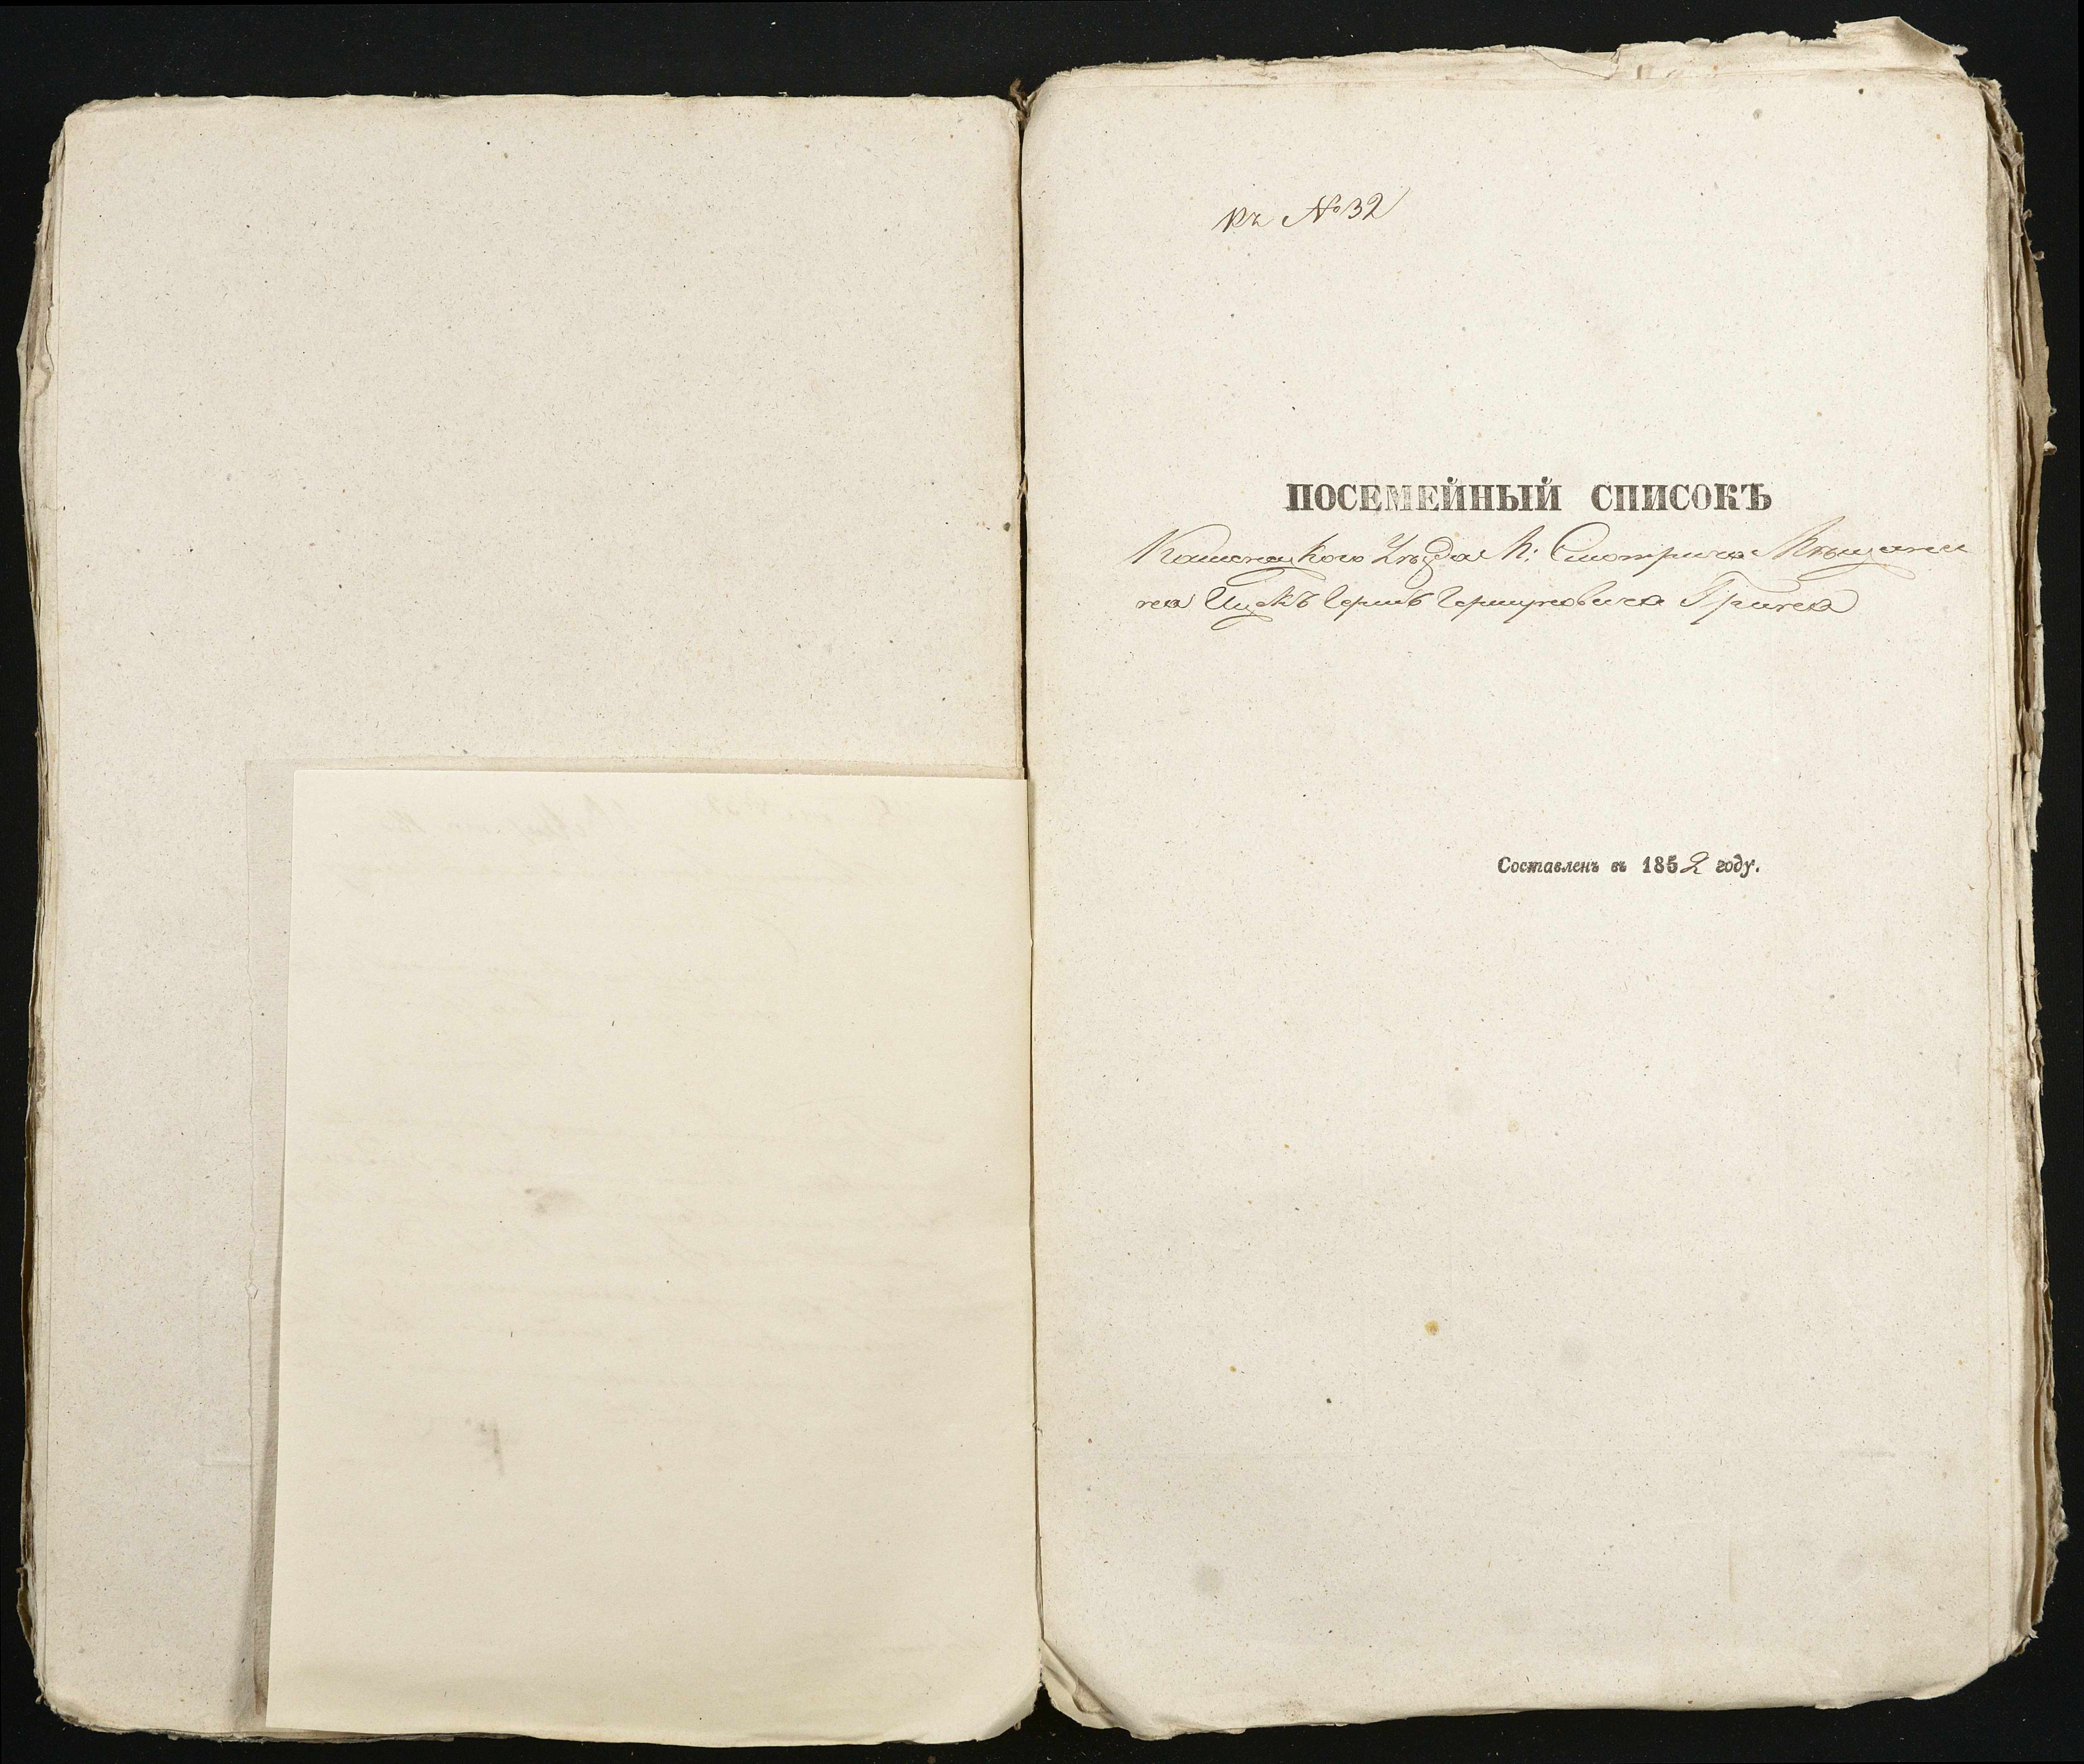 къ №32
ПОСЕМЕЙНЫЙ СПИСОКЪ
Каменецкого Уѣзда М: Смотрича Мѣщани
на Ицкъ Герша Гершуновича Грина
Составленъ въ 1852 году.